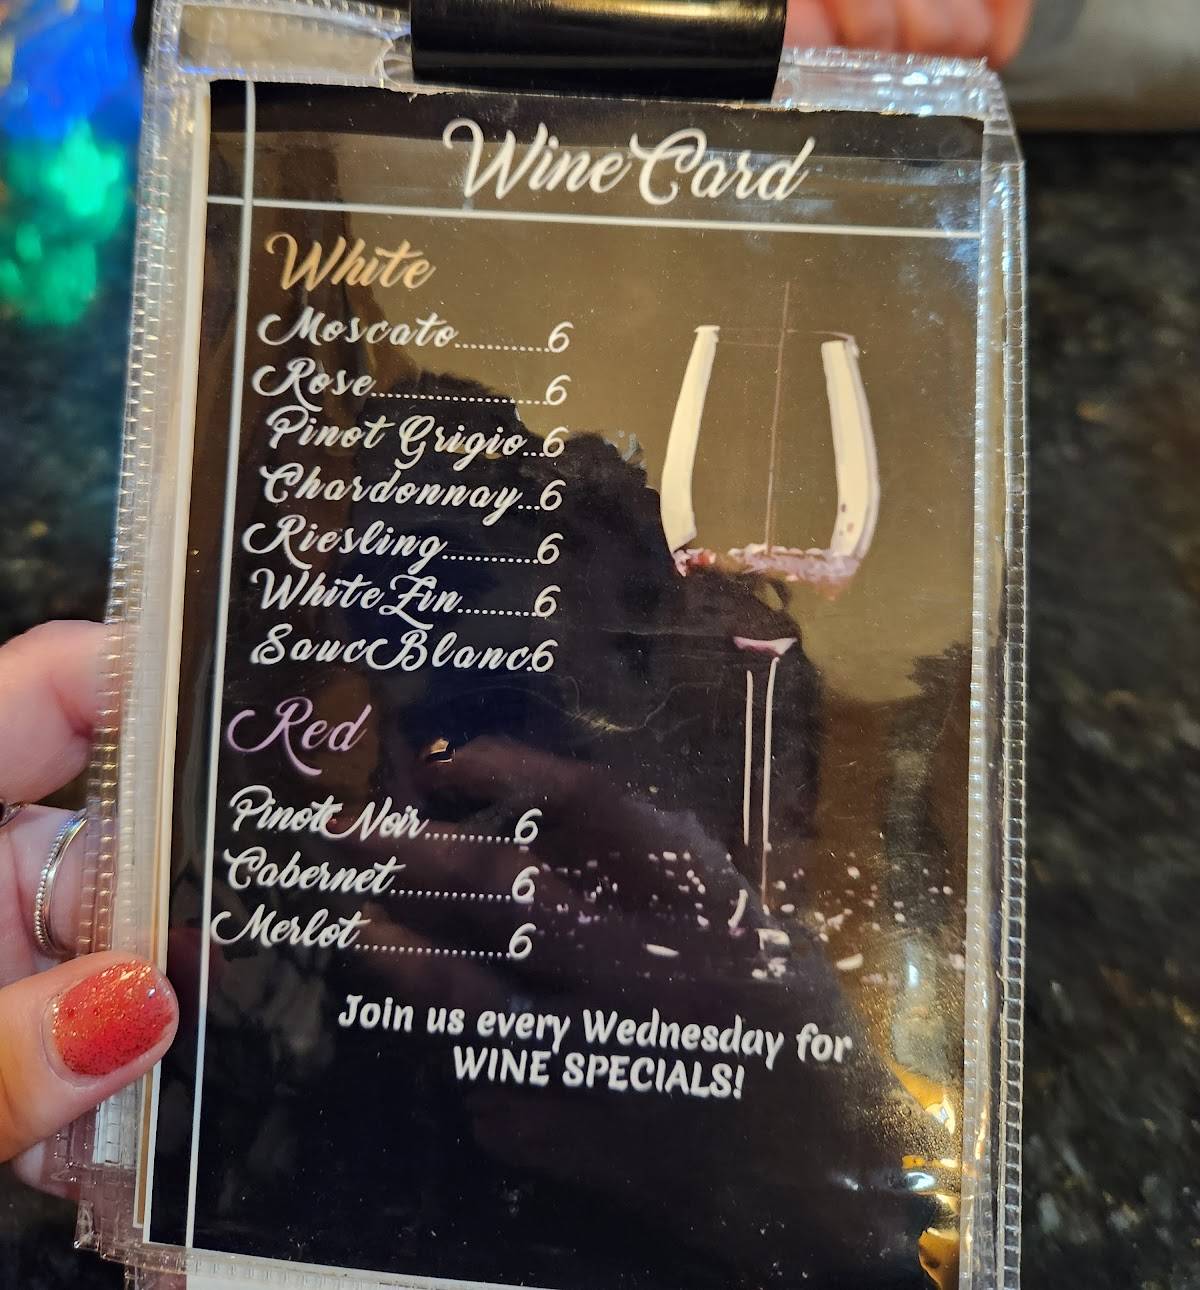 Wine Card
White
Moscato...........6
Rose......................6
Pinot Grigio...6
Chardonnay...6
Riesling............6
White Zin..........6
Sauc Blanc.6
Red
Pinot Noir..........6
Cabernet..............6
Merlot..................6
Join us every Wednesday for
WINE SPECIALS!